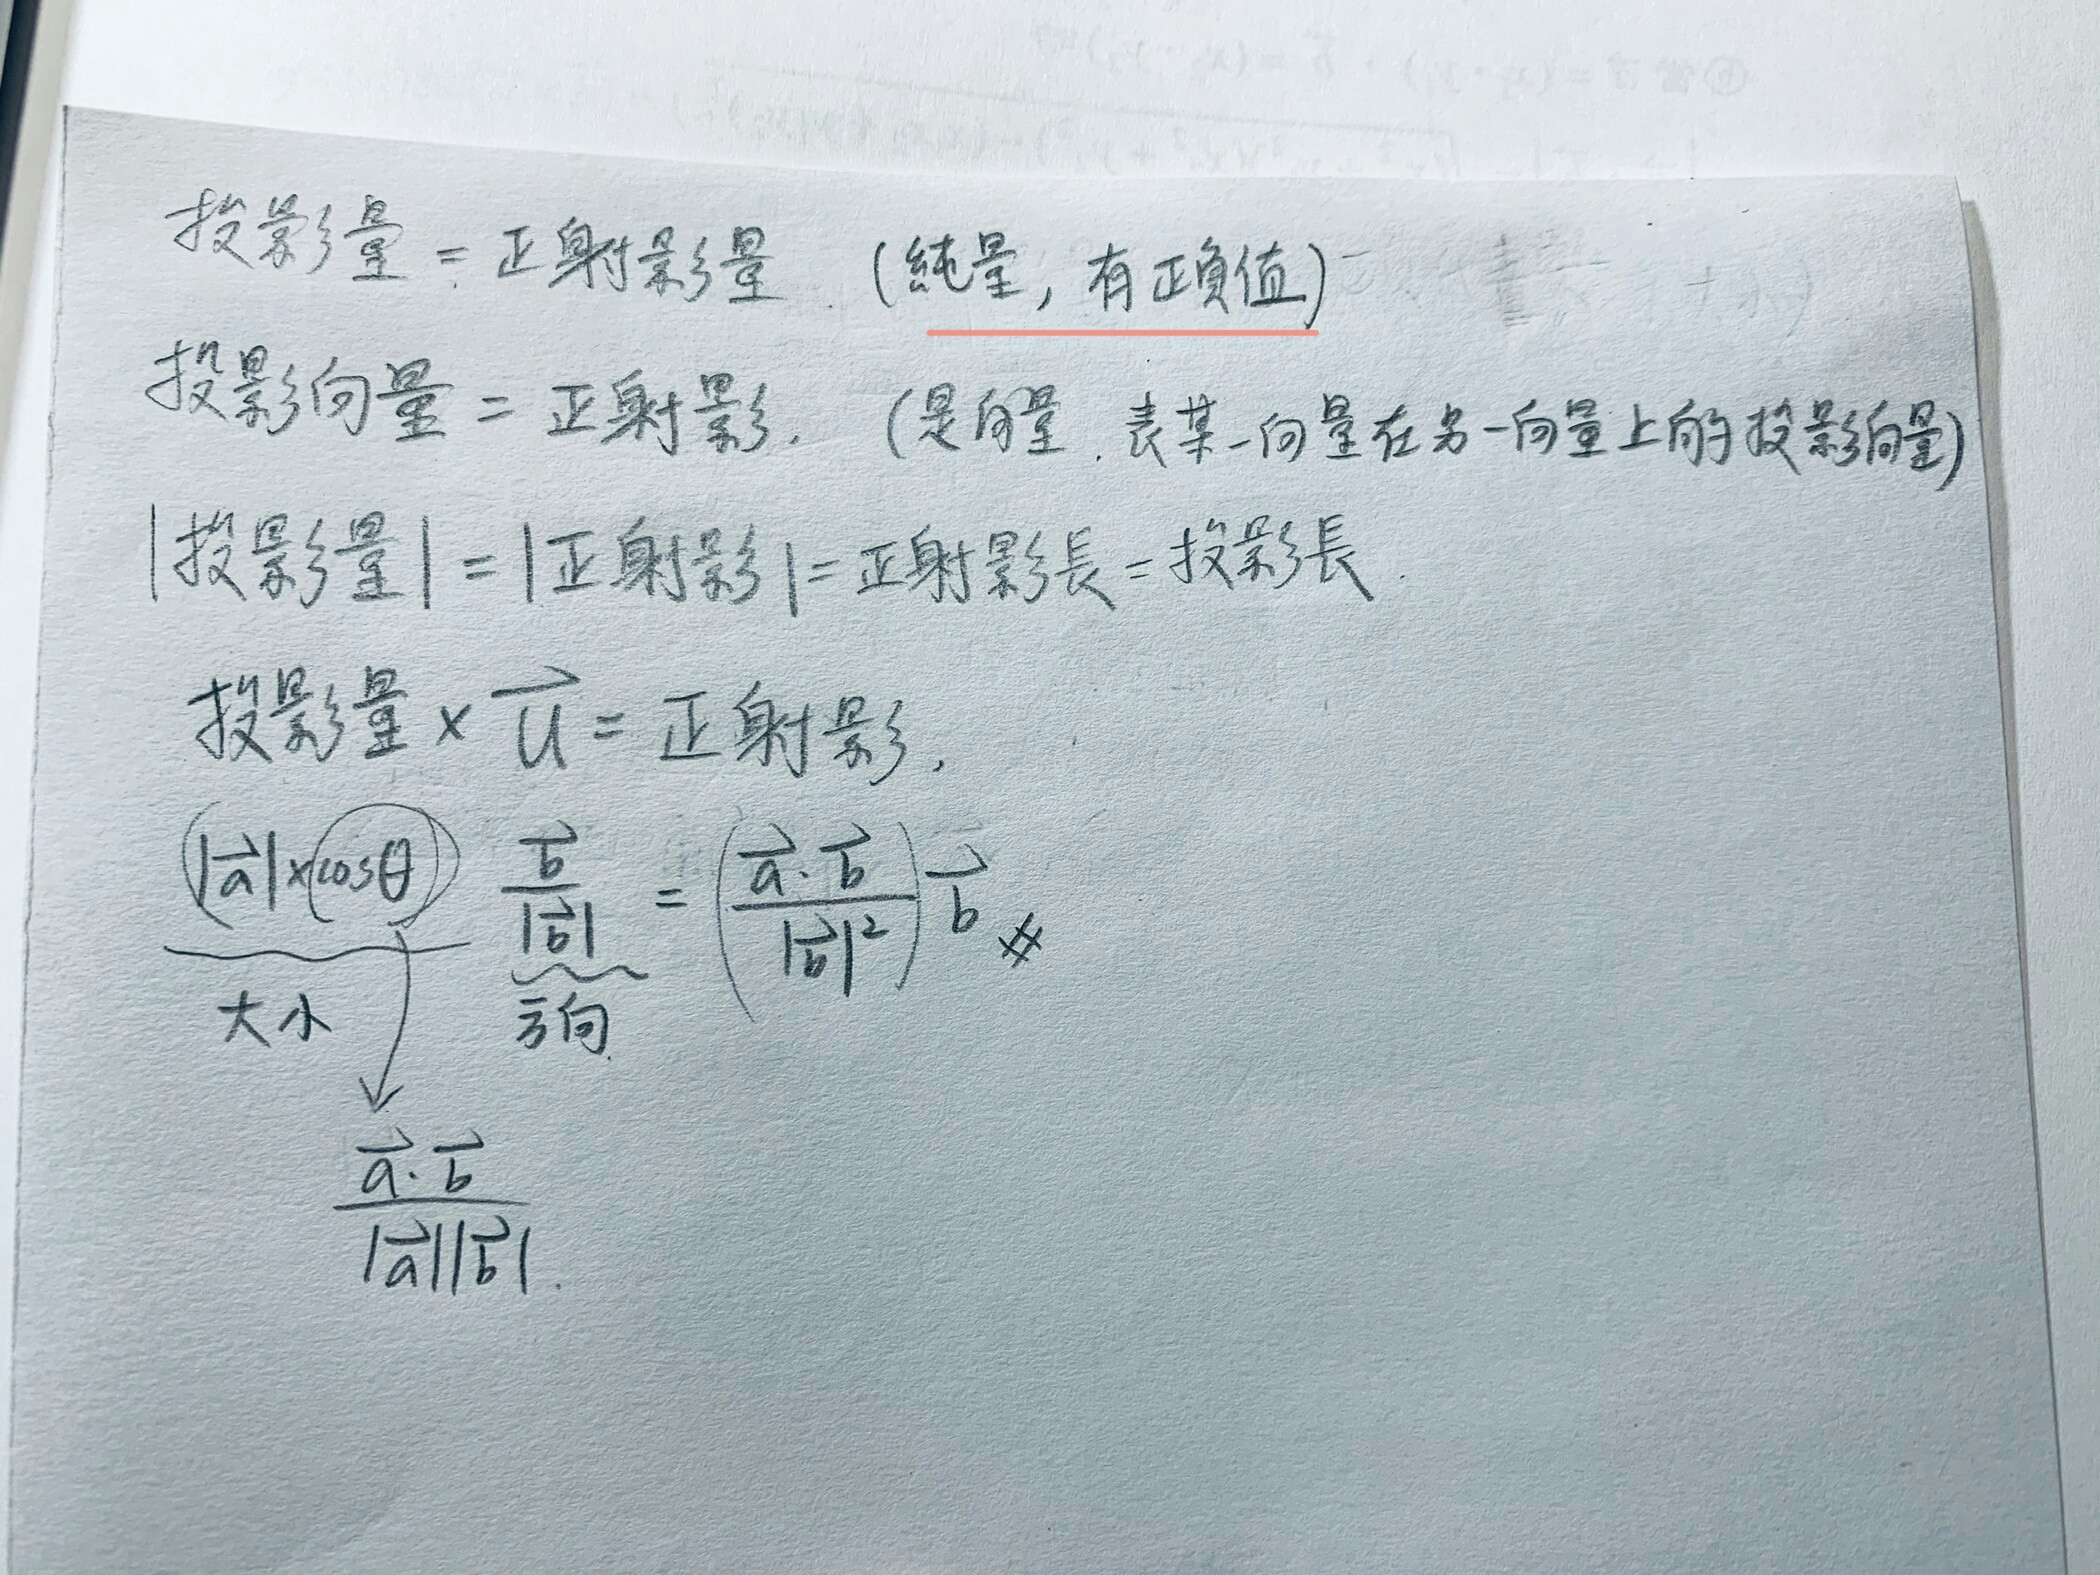 投影量 = 正射影量 (純量, 有正負值)
投影向量 = 正射影. (是向量. 表某一向量在另一向量上的投影向量)
|投影量| = |正射影| = 正射影長 = 投影長.
投影量 × \vec{u} = 正射影.
(|\vec{a}| × cosθ) \frac{\vec{b}}{|\vec{b}|} = (\frac{\vec{a}·\vec{b}}{|\vec{b}|^2}) \vec{b} #
大小 方向
\frac{\vec{a}·\vec{b}}{|\vec{a}||\vec{b}|}.